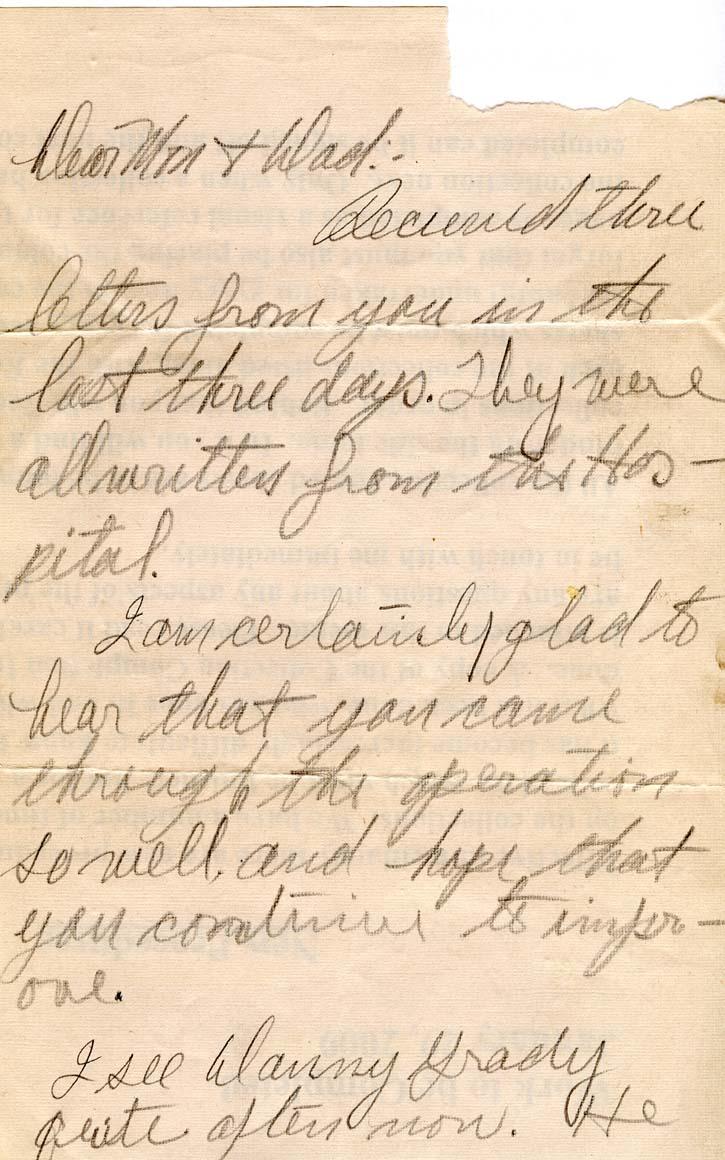 Dear Mom + Dad:-
Recieved three
letters from you in the
last three days. They were
all written from the Hos-
pital.
I am certainly glad to
hear that you came
through the operation
so well, and hope that
you continue to impr-
ove.
I see Danny Grady
quite often now. He